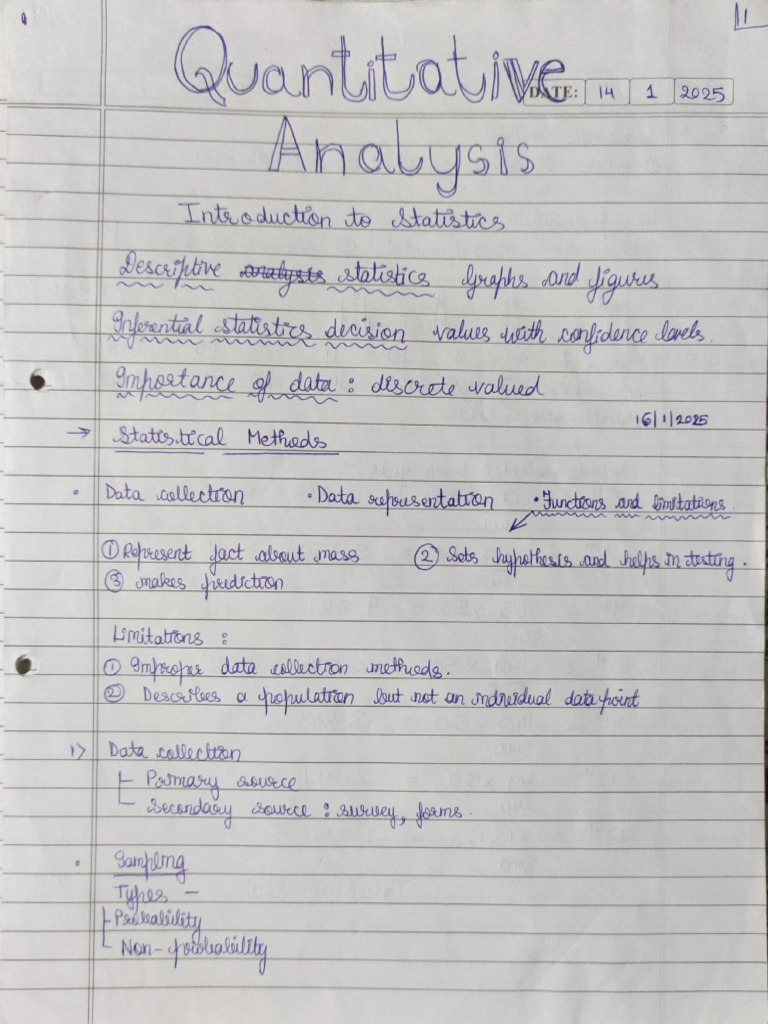 11
Quantitative
DATE: 14 1 2025
Analysis
Introduction to Statistics
Descriptive analysis statistics Graphs and figures
Inferential statistics decision values with confidence levels.
Importance of data : discrete valued
16/1/2025
→ Statistical Methods
• Data collection • Data representation • Functions and limitations
① Represent fact about mass ② Sets hypothesis and helps in testing.
③ makes prediction
Limitations :
① Improper data collection methods.
② Describes a population but not an individual data point
1> Data collection
Primary source
Secondary source : survey, forms.
• Sampling
Types -
Probability
Non-probability